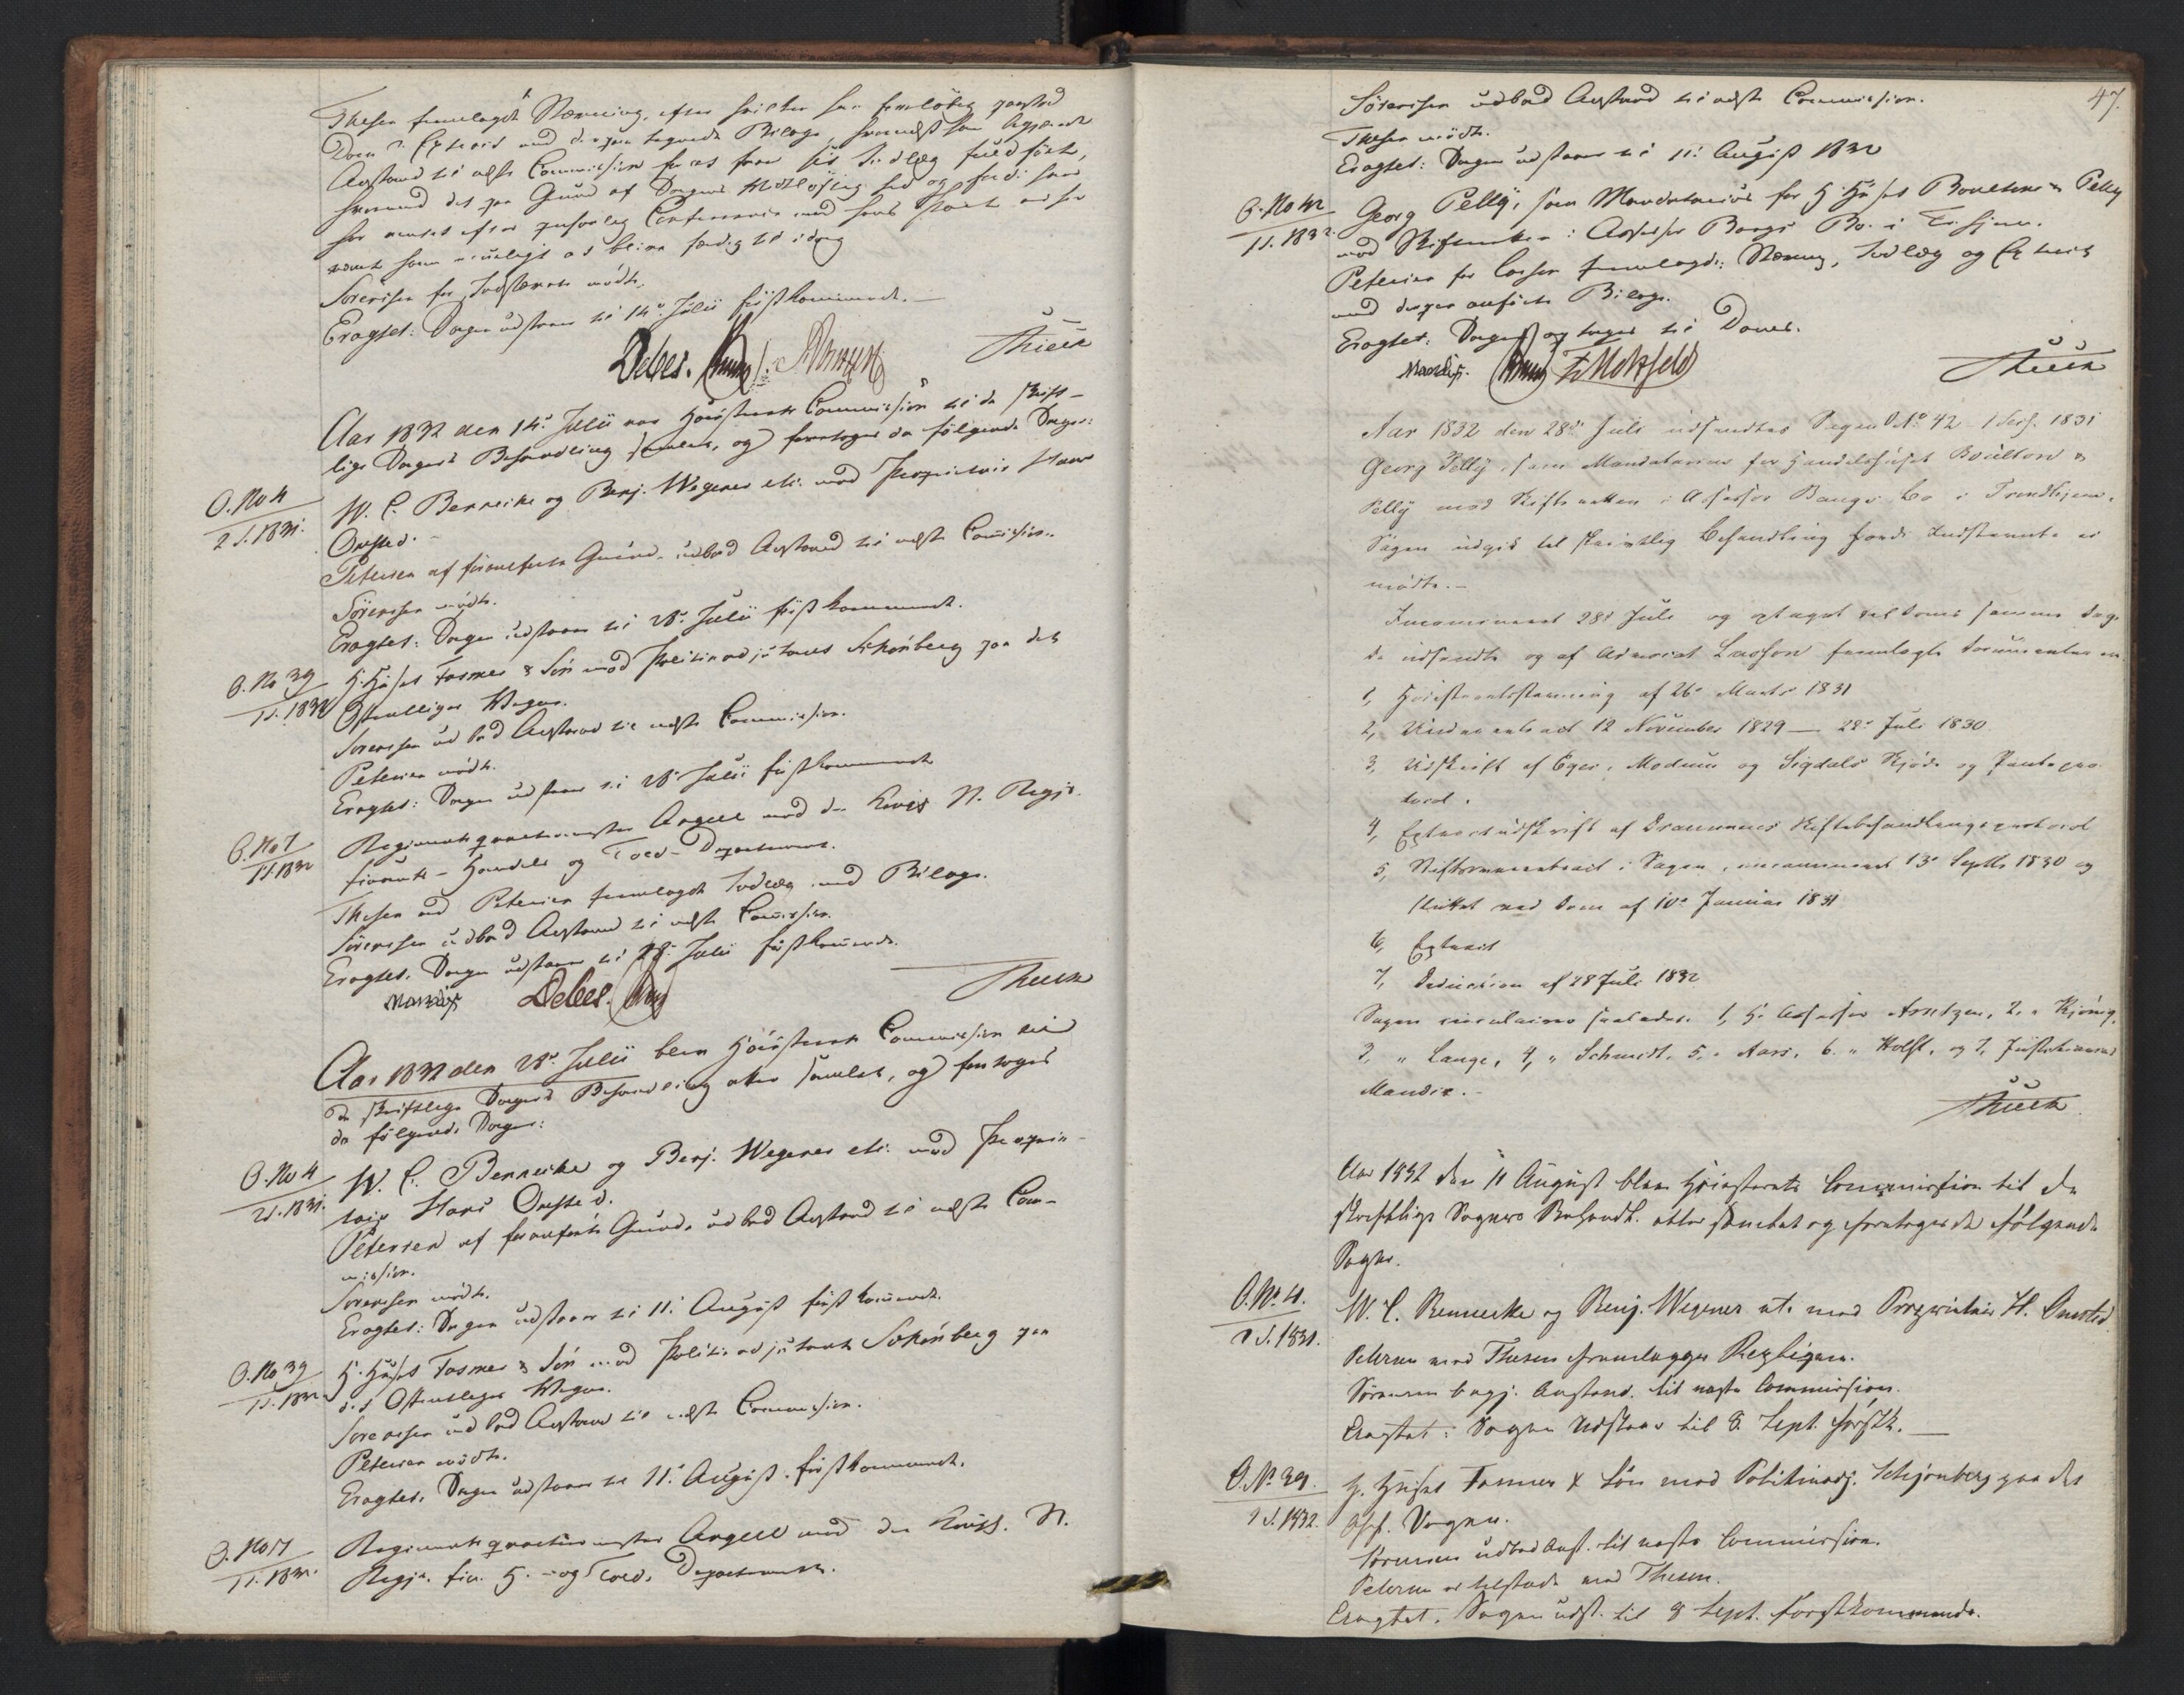 Thesen fremlagde Stævning, efter hvilken han foreløbig paastod
Dom i Extract med derpaa tegnede Bilage, hvornæst han begjærede
Anstand til næste Commission for at faae sit Indlæg fuldført,
hvormed det paa Grund af Sagens Vidtløftighed og fordi han
har ventet efter Conference med har ikke
været ham mueligt at blive færdig til idag
Sörensen for Indstævnte mødte.
Eragtet: Sagen udstaaer til 14de Julii førstkommende.
Debes.
Thieck
Aar 1832 den 14de Julii var Høiesterets Commission til de skrift-
lige Sagers Behandling samlet, og foretoges da følgende Sager:
O. No 4
2 S. 1831.
W. C. Benneche og Benj. Wegener etc. mod Proprietair Hans
Onsted.
Petersen af foranførte Grund udbad Anstand til næste Commission.
Sörensen mødte.
Eragtet: Sagen udstaaer til 28de Julii førstkommende.
O. No 39
1 S. 1832
H. Huset Fosmer & Søn mod Politieadjutant Schönberg paa det
Offentliges Vegne.
Sørensen udbad Anstand til næste Commission.
Petersen mødte.
Eragtet: Sagen udstaaer til 28de Julii førstkommende
O. No 7
1 S. 1832
Regimentsqvarteermester Angell mod den Kongl. N. Regjs.
Finants- Handels og Told-Departement.
Thesen ved Petersen fremlagde Indlæg med Bilage.
Sörensen udbad Anstand til næste Commission.
Eragtet: Sagen udstaaer til 28de Julii førstkommende.
Mandix Debes.
Thieck
Aar 1832 den 28de Julii blev Høiesterets Commission til
de skriftlige Sagers Behandling atter samlet, og foretoges
da følgende Sager:
O. No 4
2 S. 1831.
W. C. Benneche og Benj. Wegener etc. mod Proprie-
tair Hans Onsted.
Petersen af foranførte Grund udbad Anstand til næste Com-
mission.
Sörensen mødte.
Eragtet: Sagen udstaaer til 11te August førstkommende.
O. No 39
1 S. 1832
H. Huset Fosmer & Søn mod Politieadjutant Schönberg paa
det Offentliges Vegne.
Sørensen udbad Anstand til næste Commission.
Petersen mødte.
Eragtet. Sagen udstaaer til 11te August førstkommende.
O. No 7
1 S. 1832.
Regimentsqvarteermester Angell mod den Kongl. N.
Regjs. Fin. H. - og Told. Departement.
47.
Sörensen udbad Anstand til næste Commission.
Thesen mødte.
Eragtet: Sagen udstaaer til 11te August 1832
O. No 42
1 S. 1832.
Georg Pelly, som Mandatarius for H. Huset Boulton & Pelly
mod Skifteretten i Assessor Bangs Bo i Trhjem.
Petersen for Lasson fremlagde: Stævning, Indlæg og Extract
med derpaa anførte Bilage.
Eragtet: Sagen optages til Doms.
Mandix. Motzfeldt
Thieck
Aar 1832 den 28de Juli udsendtes Sagen O No 42 1 Sess. 1831
Georg Pelly, som Mandatarius for Handelshuset Boulton &
Pelly mod Skifteretten i Assessor Bangs Bo i Trondhjem.
Sagen udgik til skriftlig Behandling fordi Indstævnte ei
mødte.-
Incamineret 28de Juli og optaget til Doms samme Dag.
De udsendte og af Advocat Lasson fremlagte Documenter ere
1, Høiesteretsstævning af 26de Marts 1831
2, Underretsact 12 November 1829 — 22de Juli 1830.
3, Udskrift af Eger, Modums og Sigdals Skjøde og Pantepro-
tocol.
4, Extractudskrift af Drammens Skiftebehandlingsprotocol
5, Stiftsoverretsact i Sagen, incamineret 13de Septbr 1830 og
sluttet ved Dom af 10de Januar 1831
6, Extract
7, Deduction af 28 Juli 1832
Sagen circulerer saaledes. 1, Hr Assessor Arntzen, 2, " Kjönig,
3, " Lange, 4, " Schmidt. 5, " Aars. 6. " Holst. og 7, Justitiarius
Mandix.-
Thieck.
Aar 1832 den 11 August blev Høiesterets Commission til de
skriftlige Sagers Behandl. atter samlet og foretoges da følgende
Sager.
O. No 4.
2 S. 1831.
W. C. Bennecke og Benj. Wegener etc. mod Proprietair H. Onsted.
Petersen med Thesen fremlægger Repliqven.
Sörensen begj. Anstand til næste Commission.
Eragtet: Sagen udstaaer til 8. Sept. førstk.
O. No 39.
1 S. 1832.
H. Huset Fosmer & Søn mod Politieadj. Schjønberg paa det
Off. Vegne.
Sörensen udbad Anst. til næste Commission.
Petersen er tilstede med Thesen.
Eragtet. Sagen udst. til 8 Sept. førstkommende.